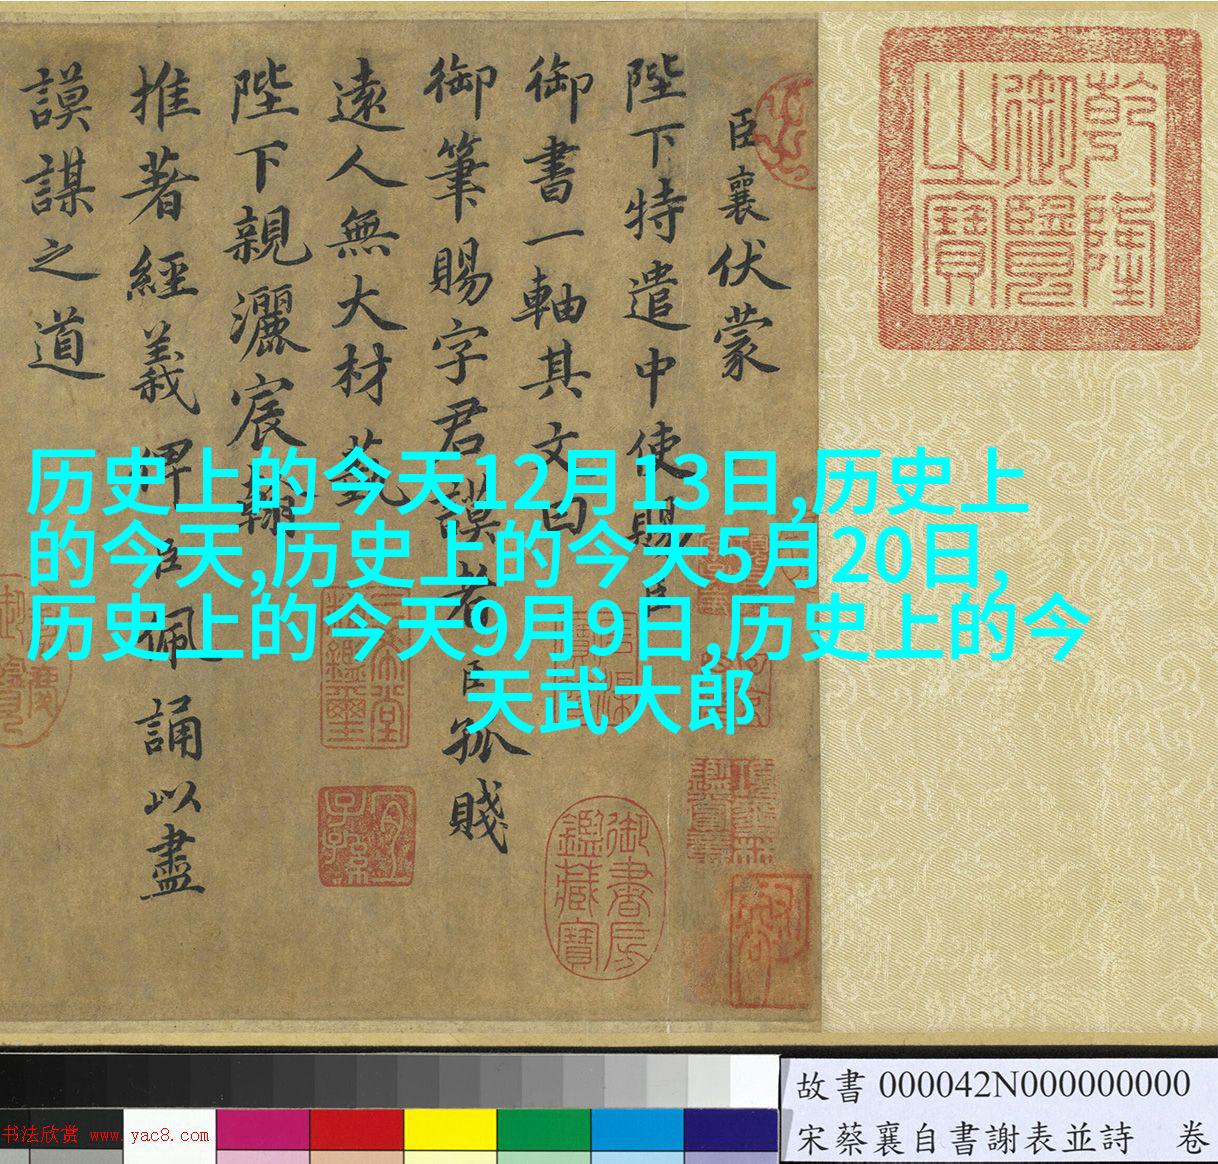 乾隆御覽之寶
臣襄伏蒙
陛下特遣中使賜臣
御書一軸其文曰
御筆賜字君謨者臣孤賤
遠人無大材藝
陛下親灑宸翰
推著經義俾臣佩誦以盡
謨謀之道
历史上的今天12月13日,历史上
的今天,历史上的今天5月20日,
历史上的今天9月9日,历史上的今
天武大郎
三希堂精鑑璽
宜子孫
御書房鑑藏寶
故書 000042N000000000
宋蔡襄自書謝表並詩 卷
书法欣赏 www.yac8.com